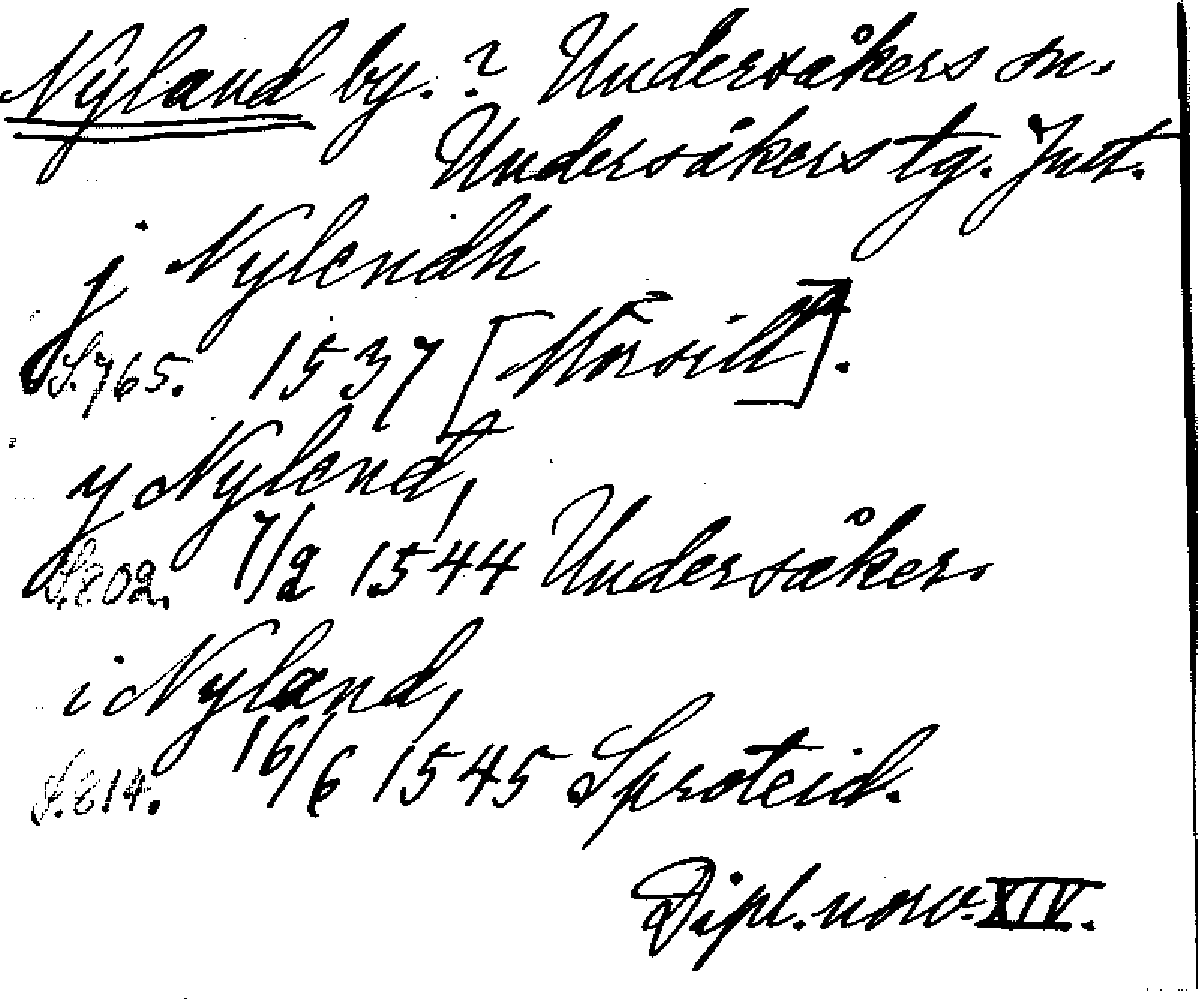 Nyland by.? Undersåkers sn.
Undersåkers tg. Jmt.
j Nylendh
S.765. 1537 [Mörsill].
y Nylend,
S.802. 7/2 1544 Undersåker.
i Nyland,
S.814. 16/6 1545 Sproteid.
Dipl. norv. XIV.